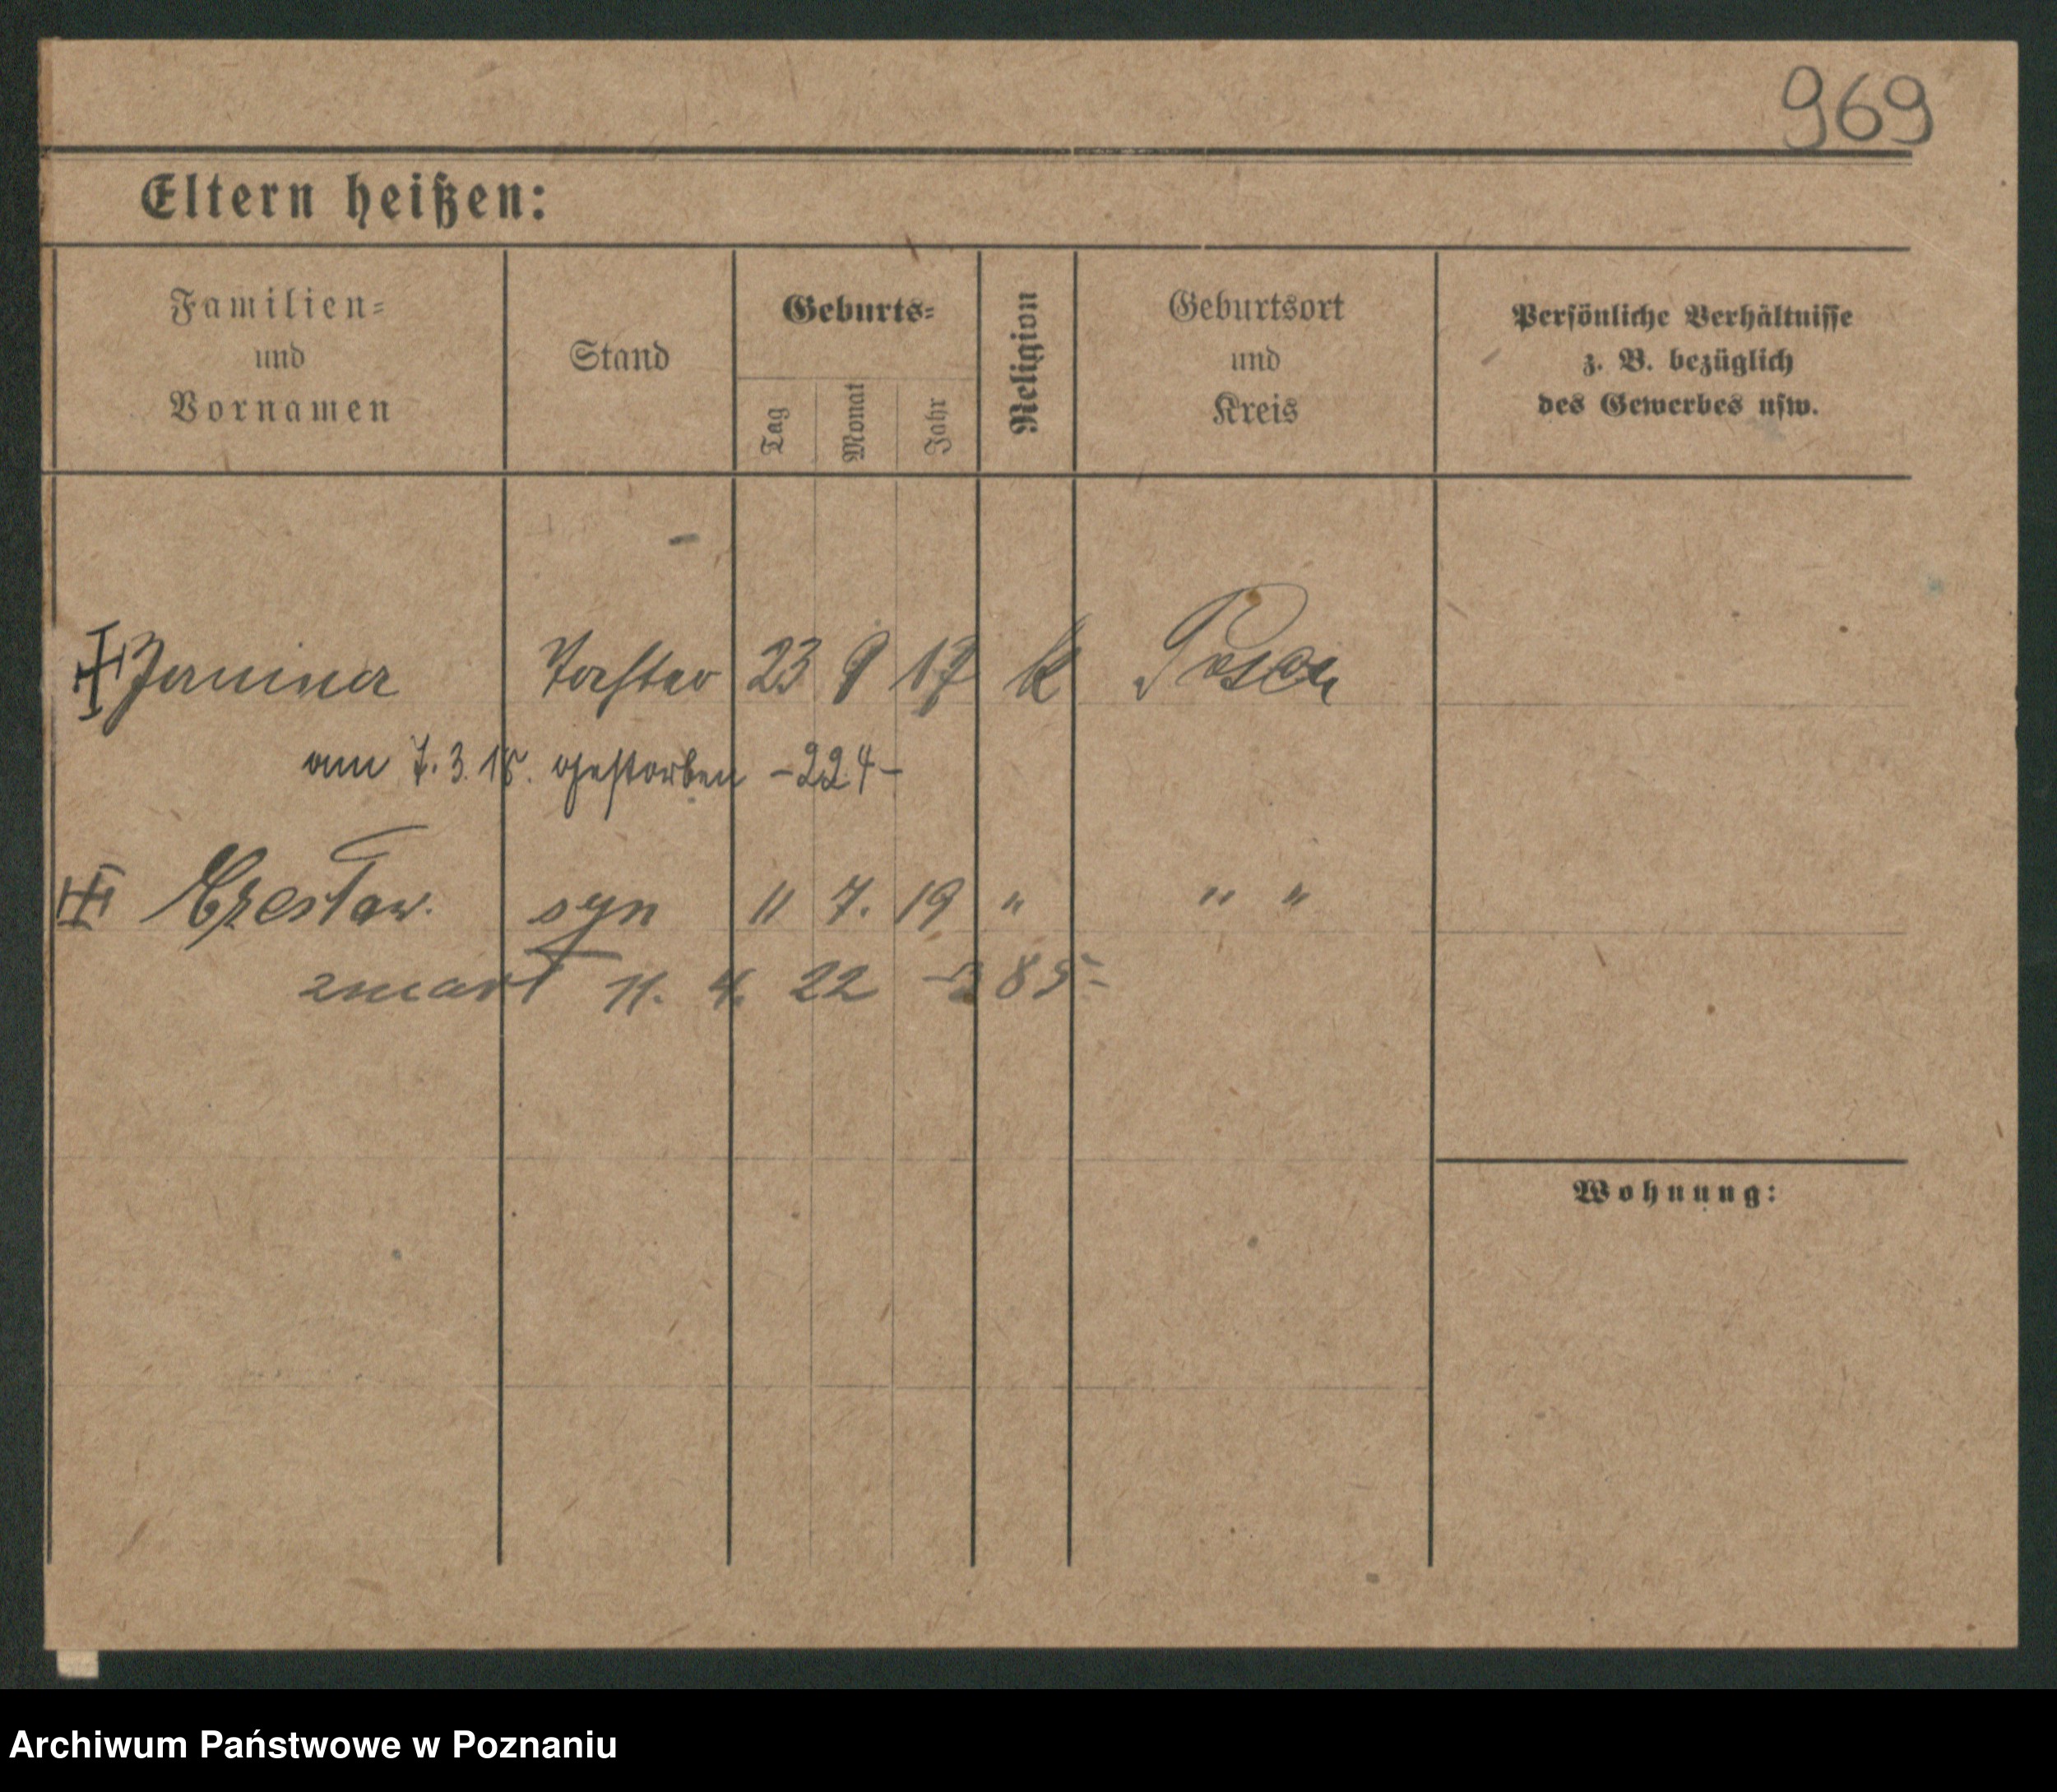 969
Eltern heißen:
Familien=
und
Vornamen
Stand
Geburts=
Tag
Monat
Jahr
Religion
Geburtsort
und
Kreis
Persönliche Verhältnisse
z. B. bezüglich
des Gewerbes usw.
Janina Tochter 23 9 17 k Posen
am 7. 3. 18. gestorben -224-
Czesław. syn 11 7. 19 " " "
zmarł 11. 4. 22 85-
Wohnung:
Archiwum Państwowe w Poznaniu